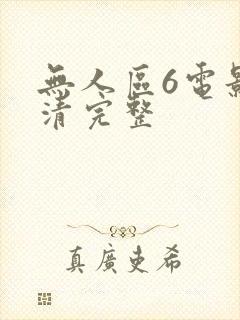 無人區6電影
清完整
真廣吏希